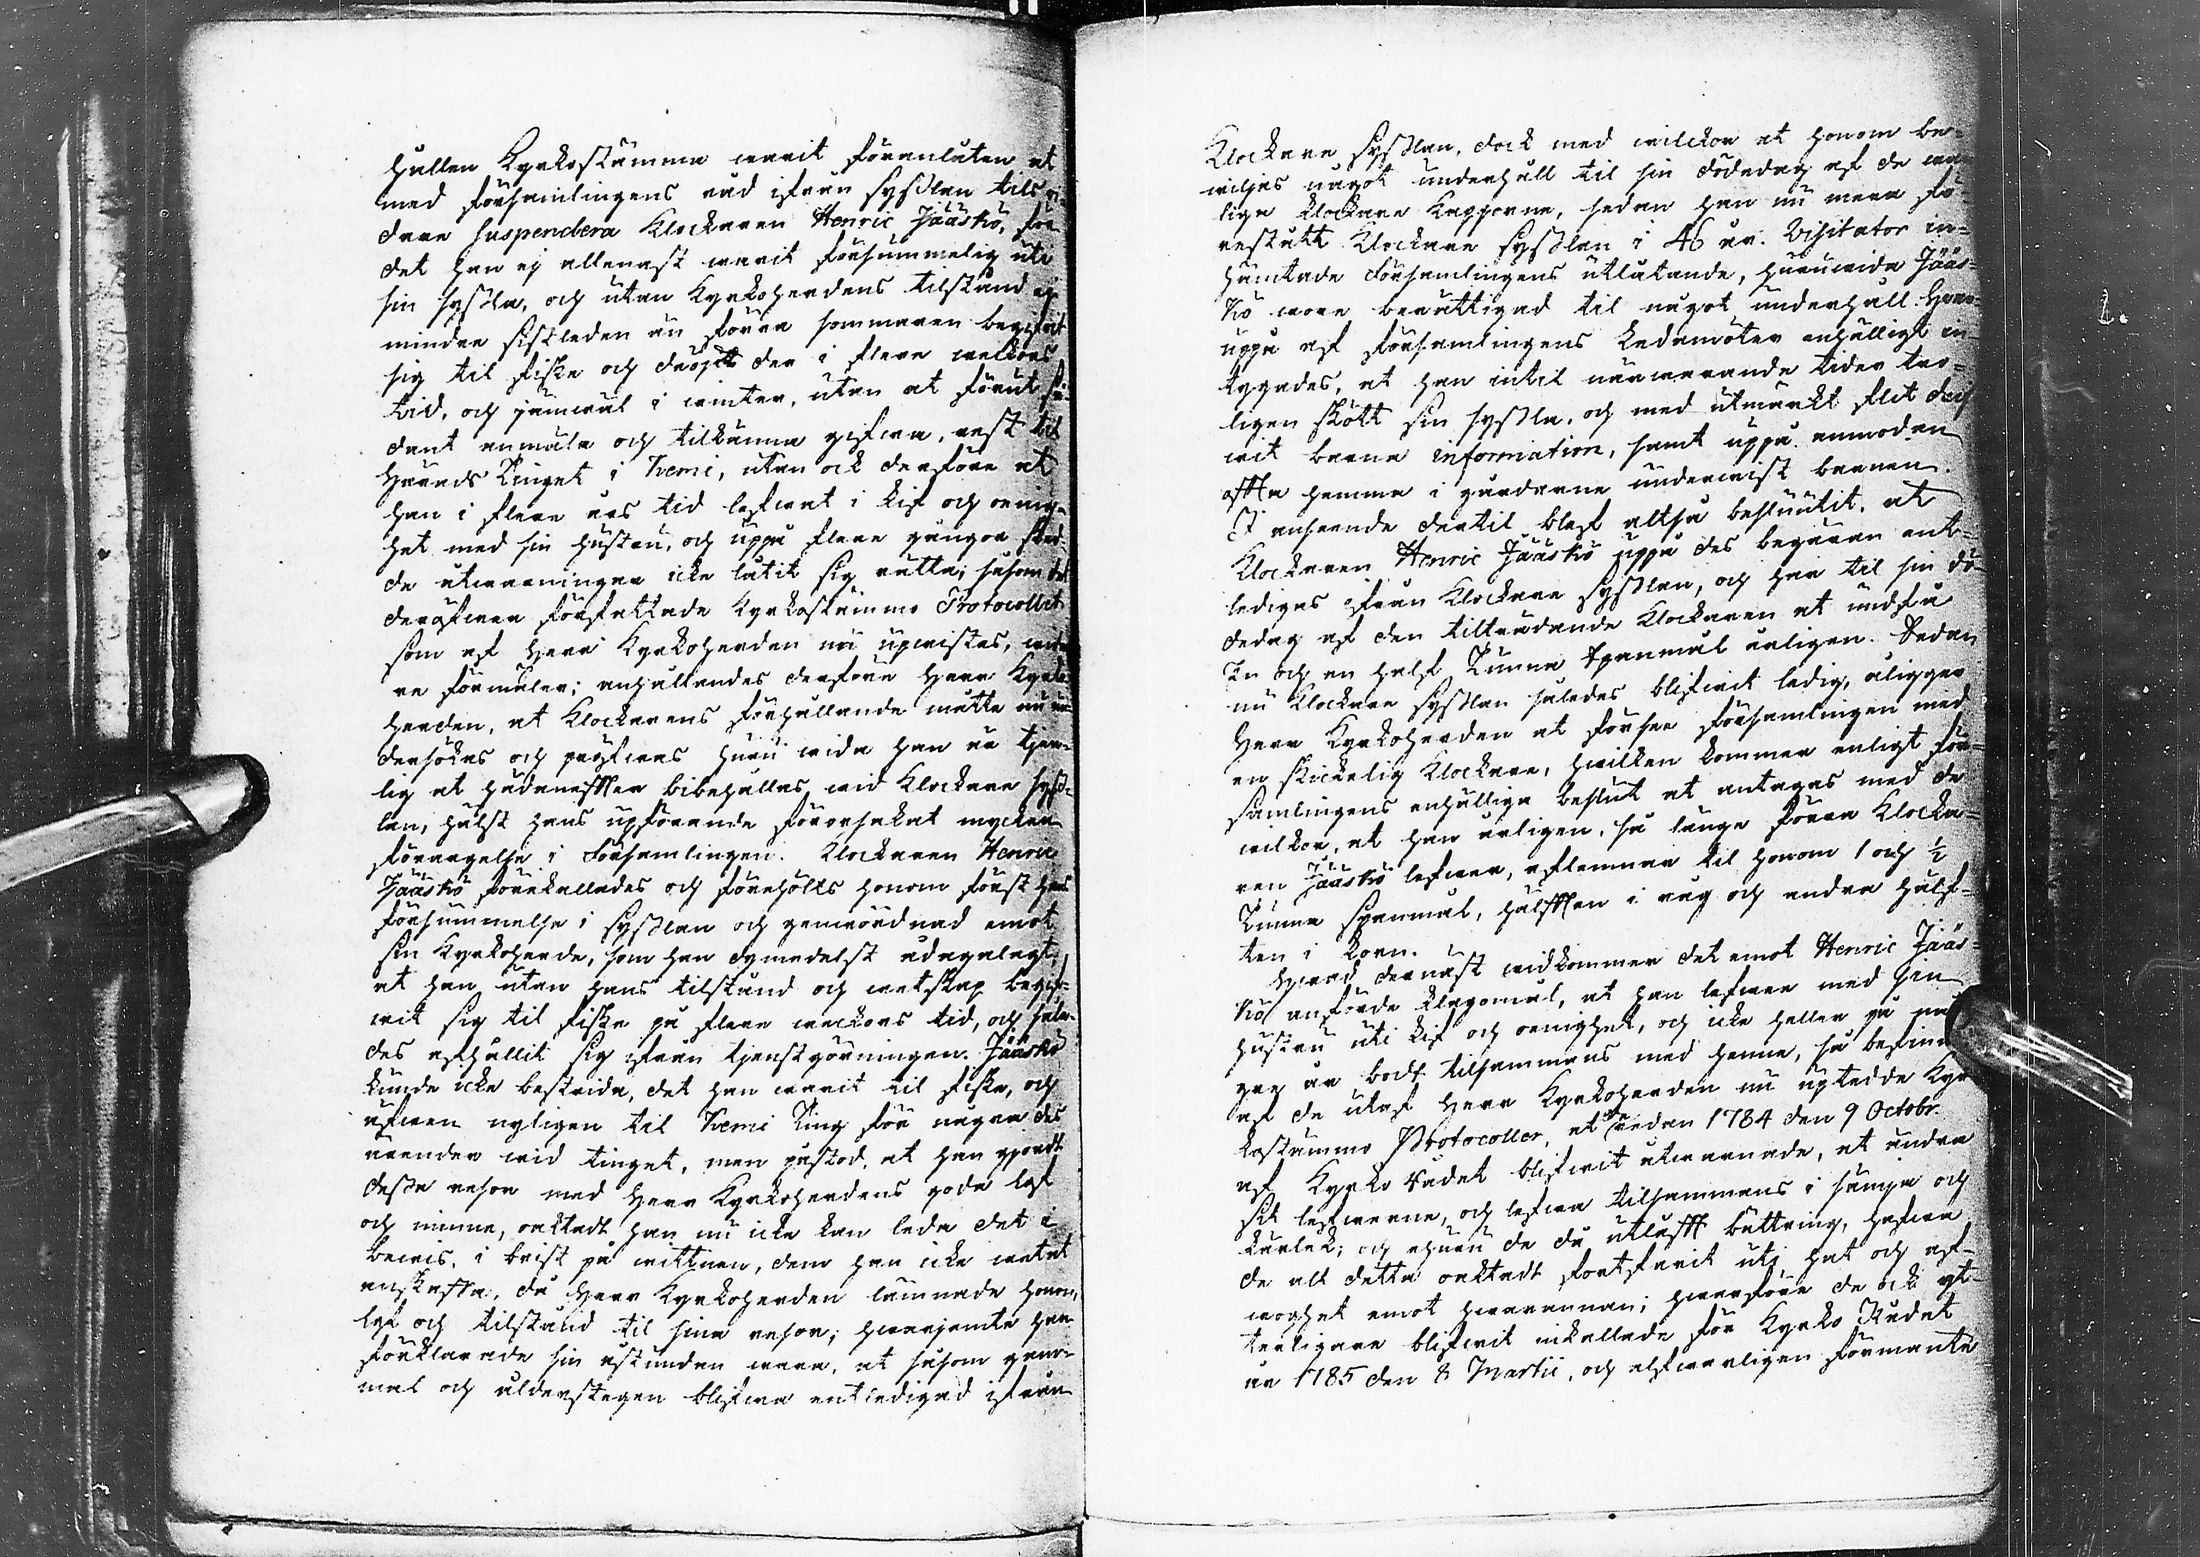 hållen Kyrkostämma warit föranlåten at
med församlingens råd ifrån sysslan tils vi-
dare suspendera Klockaren Henric Jääskö, för
det han ej allenast warit försummelig uti
sin syssla, och utan Kyrkoherdens tilstånd ej
mindre sistleden än förra sommaren begifvit
sig til fiske och drögdt der i flere weckors
tid, och jämwäl i winter, utan at förut så-
dant anmäla och tilkänna gifwa, rest til
Härads Tinget i Kemi, utan ock derföre at
han i flere års tid lefwat i kif och oenig-
het med sin hustru, och uppå flere gångor sked-
de åtwarningar icke låtit sig rätta; såsom det
deröfwer författade Kyrkostämmo Protocollet
som af Herr Kyrkoherden nu upwistes, wida-
re förmäler; anhållandes derföre Herr Kyrko-
herden, at Klockarens förhållande måtte nu un-
dersökas och pröfwas huru wida han är tjen-
lig at hädanefter bibehållas wid Klockare syss-
lan, hälst hans upförande förorsakat mycken
förargelse i församlingen. Klockaren Henric
Jääskö förekallades och förehölts honom först hans
försummelse i sysslan och genwördnad emot
sin Kyrkoherde, som han dymedelst ådagalagt,
at han utan hans tilstånd och wetskap begif-
wit sig til fiske på flere weckors tid, och såle-
des afhållit sig ifrån tjenstgörningen. Jääskö
kunde icke bestrida, det han warit til fiske, och
äfwen nyligen til Kemi Ting för några des
ärender wid tinget, men påstod, at han gjordt
dessa resor med Herr Kyrkoherdens goda lof
och minne, oaktadt han nu icke kan leda det i
bewis, i brist på wittnen, dem han icke wetat
anskaffa, då Herr Kyrkoherden lämnade honom
lof och tilstånd til sina resor; hwarjemte han
förklarade sin åstundan wara, at såsom gam-
mal och ålderstegen blifwa entledigad ifrån
Klockare sysslan, dock med wilckor at honom be-
wiljes något underhåll til sin dödedag af de wan-
liga Klockare Kapporne, sedan han nu mera fö-
restått Klockare sysslan i 46 år. Visitator in-
hämtade församlingens utlåtande, huruwida Jääs-
kö wore berättigad til något underhåll. Hwar-
uppå af församlingens Ledamöter enhälligt in-
tygades, at han intil närwarande tider tro-
ligen skött sin syssla, och med utmärkt flit drif-
wit barna information, samt uppå anmodan
offta hemma i gårdarne underwist barnen.
I anseende dertil blef altså beslutit, at
Klockaren Henric Jääskö uppå des begäran ent-
lediges ifrån Klockare sysslan, och har til sin dö-
dedag af den tilträdande Klockaren at undfå
En och en half Tunna spanmål årligen. Sedan
nu Klockare sysslan således blifwit ledig, åligger
Herr Kyrkoherden at förse församlingen med
en skickelig Klockare, hwilken kommer enligt för-
samlingens enhälliga beslut at antagas med de
wilkor, at han årligen, så länge förra Klocka-
ren Jääskö lefwer, aflemnar til honom 1 och ½
Tunna spanmål, hälfften i råg och andra hälf-
ten i korn.
Hwad dernäst widkommer det emot Henric Jääs-
kö anförde klagomål, at han lefwer med sin
hustru uti kif och oenighet, och icke heller på
år bodt tilsammans med henne, så
af de utaf Herr Kyrkoherden nu uptedde Kyr-
kostämmo Protocoller, at redan 1784 den 9 Octobr.
af Kyrko Rådet blifwit åtwarnade, at ändra
sit lefwerne, och lefwa tilsammans i sämja och
kärlek; och ehuru de då utläfft bättring, hafwa
de alt detta oaktadt fortfarit uti hat och af-
woghet emot hwarannan; hwarföre de ock yt-
terligare blifwit inkallade för Kyrko Rådet
år 1785 den 8 Martii, och alfwarligen förmante